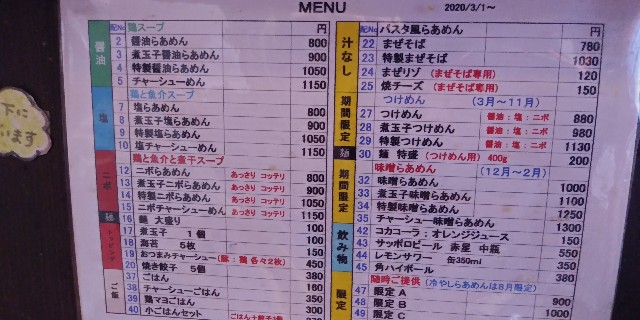 MENU
2020/3/1～
配No 鶏スープ 円
醤油
2 醤油らあめん 800
3 煮玉子醤油らあめん 900
4 特製醤油らあめん 1050
5 チャーシューめん 1150
鶏と魚介スープ
塩
7 塩らあめん 800
8 煮玉子塩らあめん 900
9 特製塩らあめん 1050
10 塩チャーシューめん 1150
鶏と魚介と煮干スープ
ニボ
12 ニボらあめん あっさり コッテリ 800
13 煮玉子ニボらあめん あっさり コッテリ 900
14 特製ニボらあめん あっさり コッテリ 1050
15 ニボチャーシューめん あっさり コッテリ 1150
麺 16 麺 大盛り 100
トッピング
17 煮玉子 1個 100
18 海苔 5枚 150
19 おつまみチャーシュー（豚：鶏 各々2枚） 350
20 焼き餃子 5個 450
ご飯
37 ごはん 380
38 チャーシューごはん 160
39 鶏マヨごはん 350
40 小ごはんセット 300
配No パスタ風らあめん 円
汁なし
22 まぜそば 780
23 特製まぜそば 1030
24 まぜリゾ （まぜそば専用） 120
25 焼チーズ （まぜそば専用） 150
つけめん （3月～11月）
期間限定
27 つけめん 醤油：塩：ニボ 880
28 煮玉子つけめん 醤油：塩：ニボ 980
29 特製つけめん 醤油：塩：ニボ 1130
麺 30 麺 特盛 （つけめん用） 400g 200
味噌らあめん （12月～2月）
期間限定
32 味噌らあめん 1000
33 煮玉子味噌らあめん 1100
34 特製味噌らあめん 1250
35 チャーシュー味噌らあめん 1300
飲み物
42 コカコーラ：オレンジジュース 150
43 サッポロビール 赤星 中瓶 550
44 レモンサワー 缶350ml
45 角ハイボール 380
随時ご提供 （冷やしらあめんは8月限定）
限定
47 限定A
48 限定B
49 限定C
下に
います